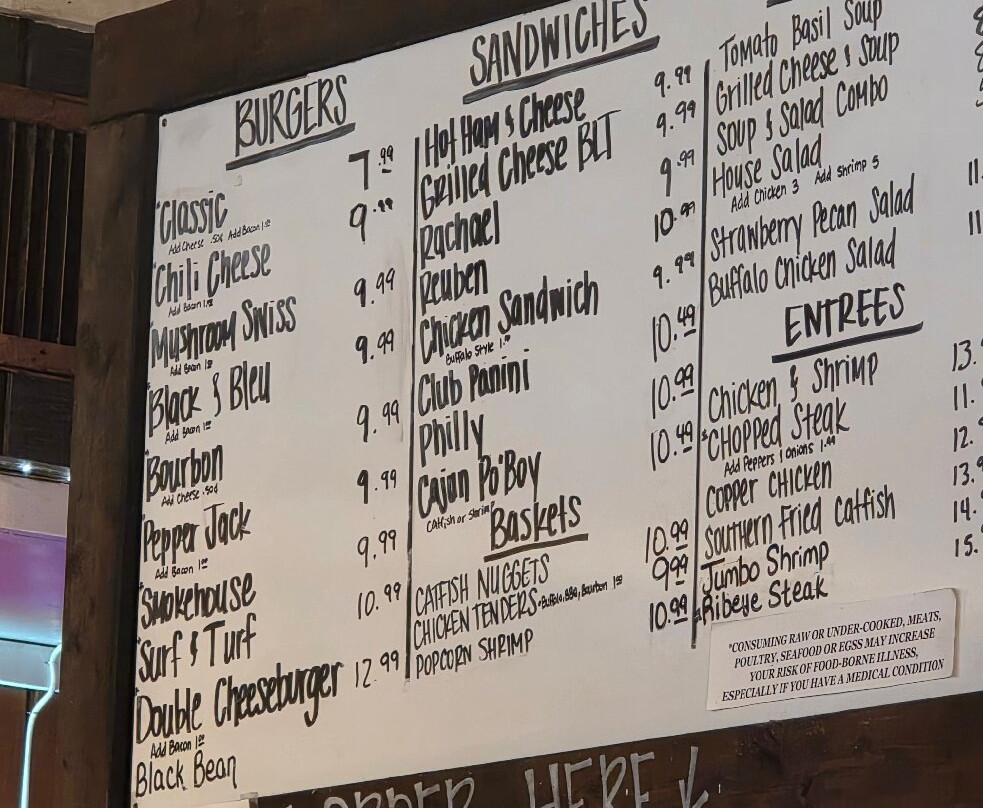 BURGERS
*Classic 7.99
Add Cheese .50¢ Add Bacon 1.00
*Chili Cheese 9.99
Add Bacon 1.00
*Mushroom Swiss 9.99
Add Bacon 1.00
*Black & Bleu 9.99
Add Bacon 1.00
*Bourbon 9.99
Add Cheese .50¢
*Pepper Jack 9.99
Add Bacon 1.00
*Smokehouse 9.99
*Surf & Turf 10.99
*Double Cheeseburger 12.99
Add Bacon 1.00
Black Bean
SANDWICHES
Hot Ham & Cheese 9.99
Grilled Cheese BLT 9.99
Rachael 9.99
Reuben 10.99
Chicken Sandwich 9.99
Buffalo Style
Club Panini 10.49
Philly 10.99
Cajun Po'Boy 10.49
Catfish or Shrimp
Baskets
CATFISH NUGGETS 10.99
CHICKEN TENDERS •Buffalo, BBQ, Bourbon 1.00 9.99
POPCORN SHRIMP 10.99
Tomato Basil Soup
Grilled Cheese & Soup
Soup & Salad Combo
House Salad
Add Chicken 3 Add Shrimp 5
Strawberry Pecan Salad 11.
Buffalo Chicken Salad 11
ENTREES
Chicken & Shrimp 13.
*Chopped Steak 11.
Add Peppers & Onions 1.49
Copper Chicken 12.
Southern Fried Catfish 13.
Jumbo Shrimp 14.
*Ribeye Steak 15.
*CONSUMING RAW OR UNDER-COOKED, MEATS,
POULTRY, SEAFOOD OR EGSS MAY INCREASE
YOUR RISK OF FOOD-BORNE ILLNESS,
ESPECIALLY IF YOU HAVE A MEDICAL CONDITION
ORDER HERE